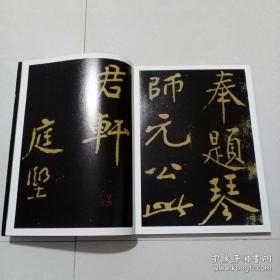 奉題琴
師元公此
君軒
庭堅
孔夫子旧书网